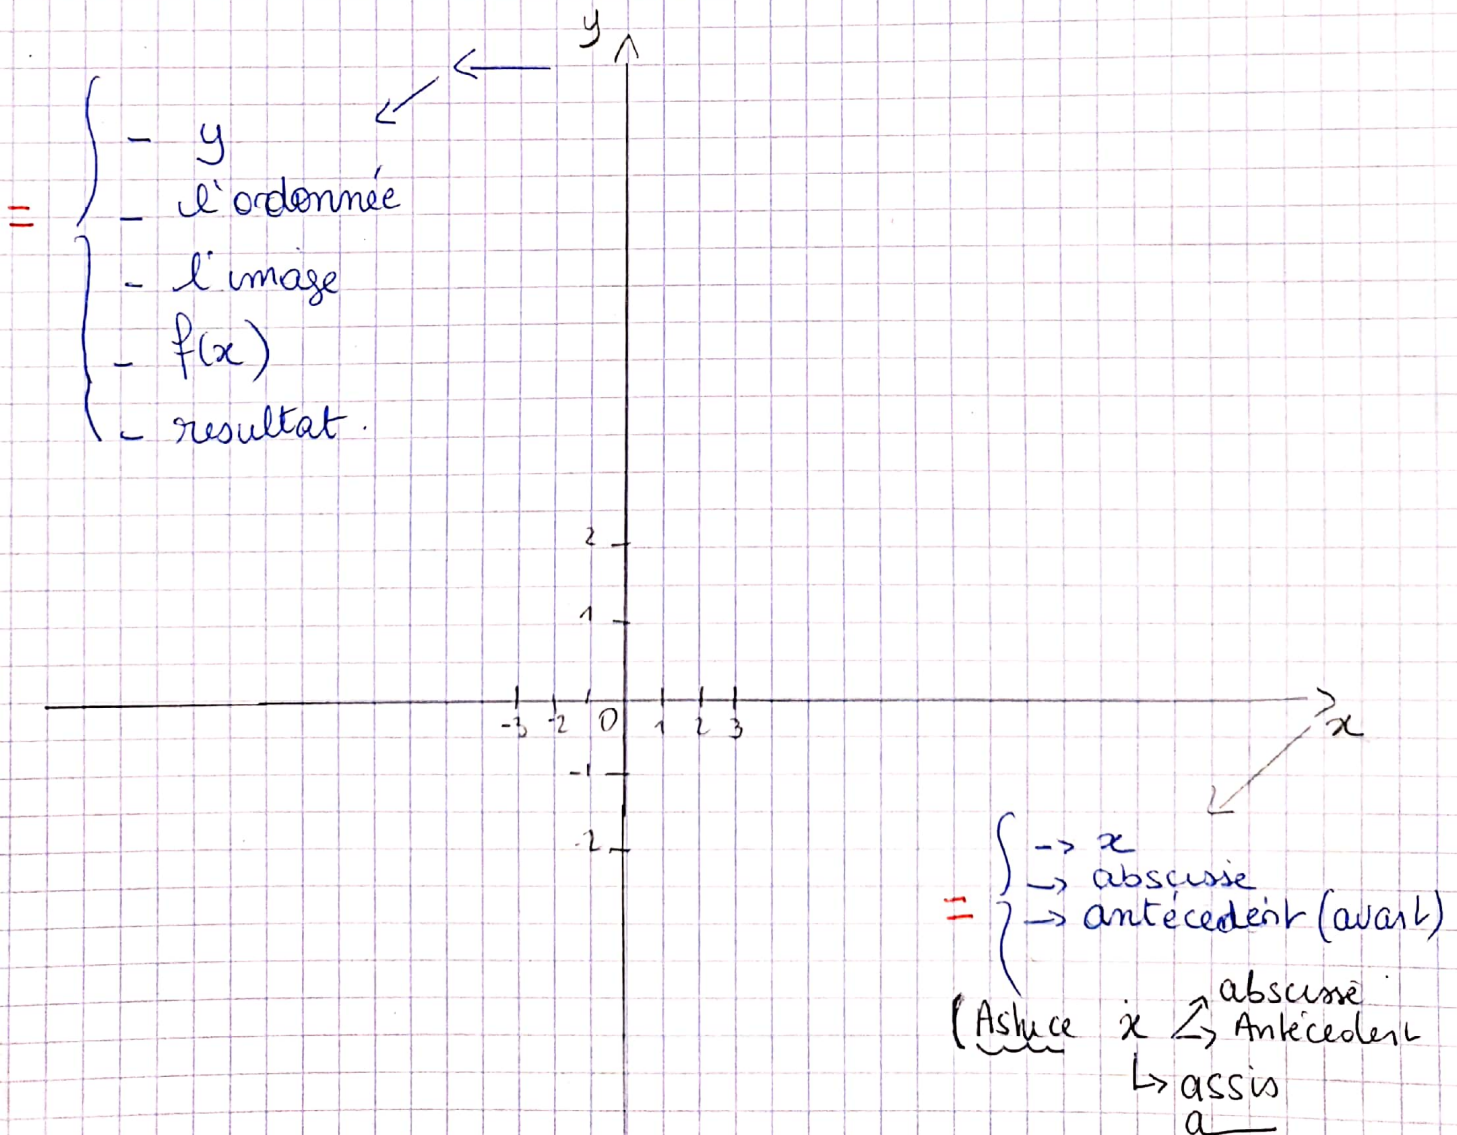 y
- y
- l'ordonnée
=
- l'image
- f(x)
- resultat.
2
1
-3 -2 0 1 2 3
x
-1
-2
-> x
-> abscisse
= -> antécedent (avant)
abscisse
(Astuce x Antécedent
↳ assis
a